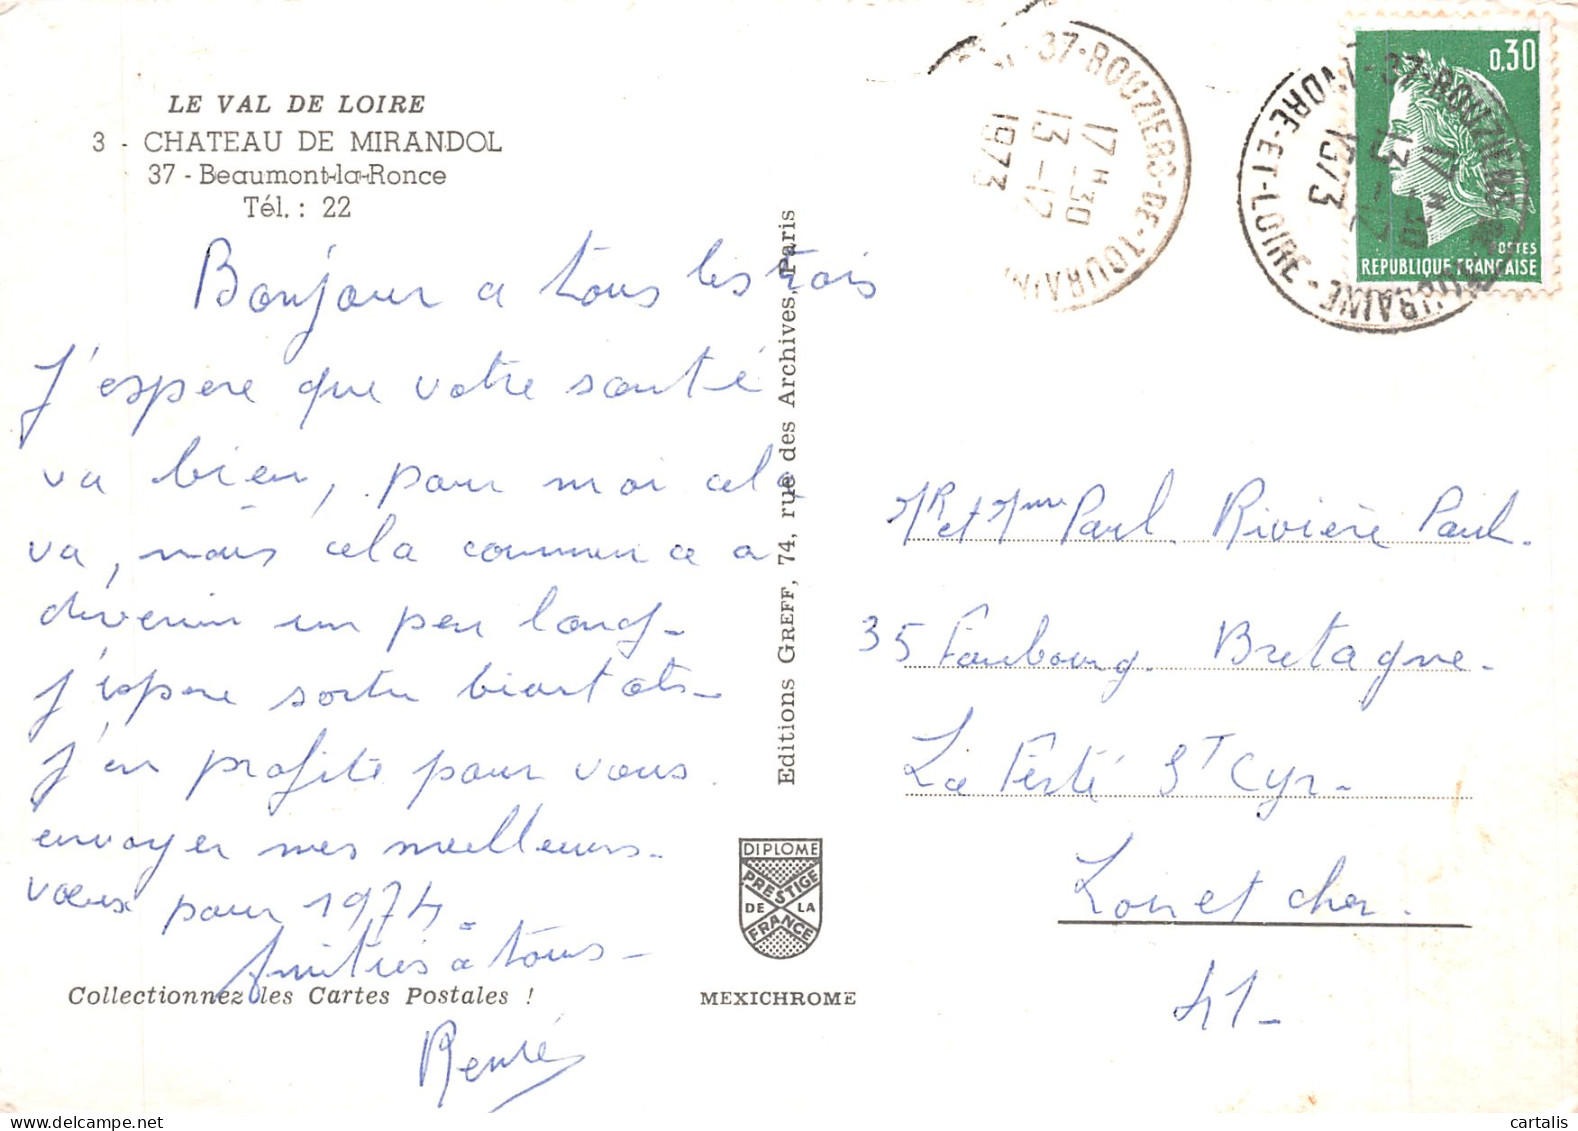 LE VAL DE LOIRE
3 - CHATEAU DE MIRANDOL
37 - Beaumont-la-Ronce
Tél. : 22
Bonjour a tous les trois
J'espere que votre santé
va bien, pour moi cela
va, mais cela commence a
devenir un peu long-
j'espere sortir bientôt-
J'en profite pour vous
envoyer mes meilleurs-
vœux pour 1974-
Amitiés à tous-
René
Collectionnez les Cartes Postales !
Editions GREFF, 74, rue des Archives, Paris
DIPLOME
PRESTIGE
DE LA
FRANCE
MEXICHROME
37-ROUZIERS-DE-TOURAIN
17 H 30
13 -12
1973
0,30
POSTES
REPUBLIQUE FRANÇAISE
37-ROUZIERS
INDRE-ET-LOIRE
17 H 30
13 -12
1973
Mr et Mme Paul Rivière Paul.
35 Faubourg Bretagne-
La Ferté St Cyr-
Loir et Cher.
41-
cartalis